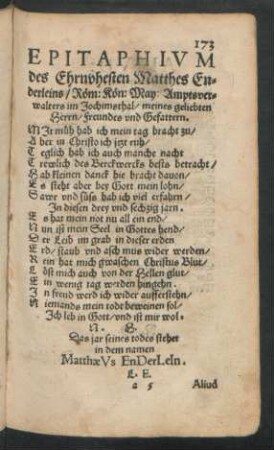 173
EPITAPHIVM
des Ehrnvhesten Matthes En-
derleins / Röm: Kön: May: Amptsver-
walters im Jochimsthal / meines geliebten
Herrn / Freundes vnd Gefattern.
MIt müh hab ich mein tag bracht zu /
Aber in Christo ich jtzt ruh /
Teglich hab ich auch manche nacht
Trewlich des Berckwercks bests betracht /
Hab kleinen danck hie bracht dauon /
Es steht aber bey Gott mein lohn /
Sawr vnd süss hab ich viel erfahrn /
In diesen drey vnd sechzig jarn.
Es hat mein not nu all ein end /
Nun ist mein Seel in Gottes hend /
Der Leib im grab in dieser erden
Erd / staub vnd asch mus wider werden /
Rein hat mich gwaschen Christus Blut /
Löst mich auch von der Hellen glut /
Ein wenig tag werden hingehn.
In freud werd ich wider aufferstehn /
Niemands mein todt beweinen sol /
Ich leb in Gott / vnd ist mir wol.
N. G.
Das jar seines todes stehet
in dem namen
MatthæVs EnDerLeIn.
L. E.
Aliud